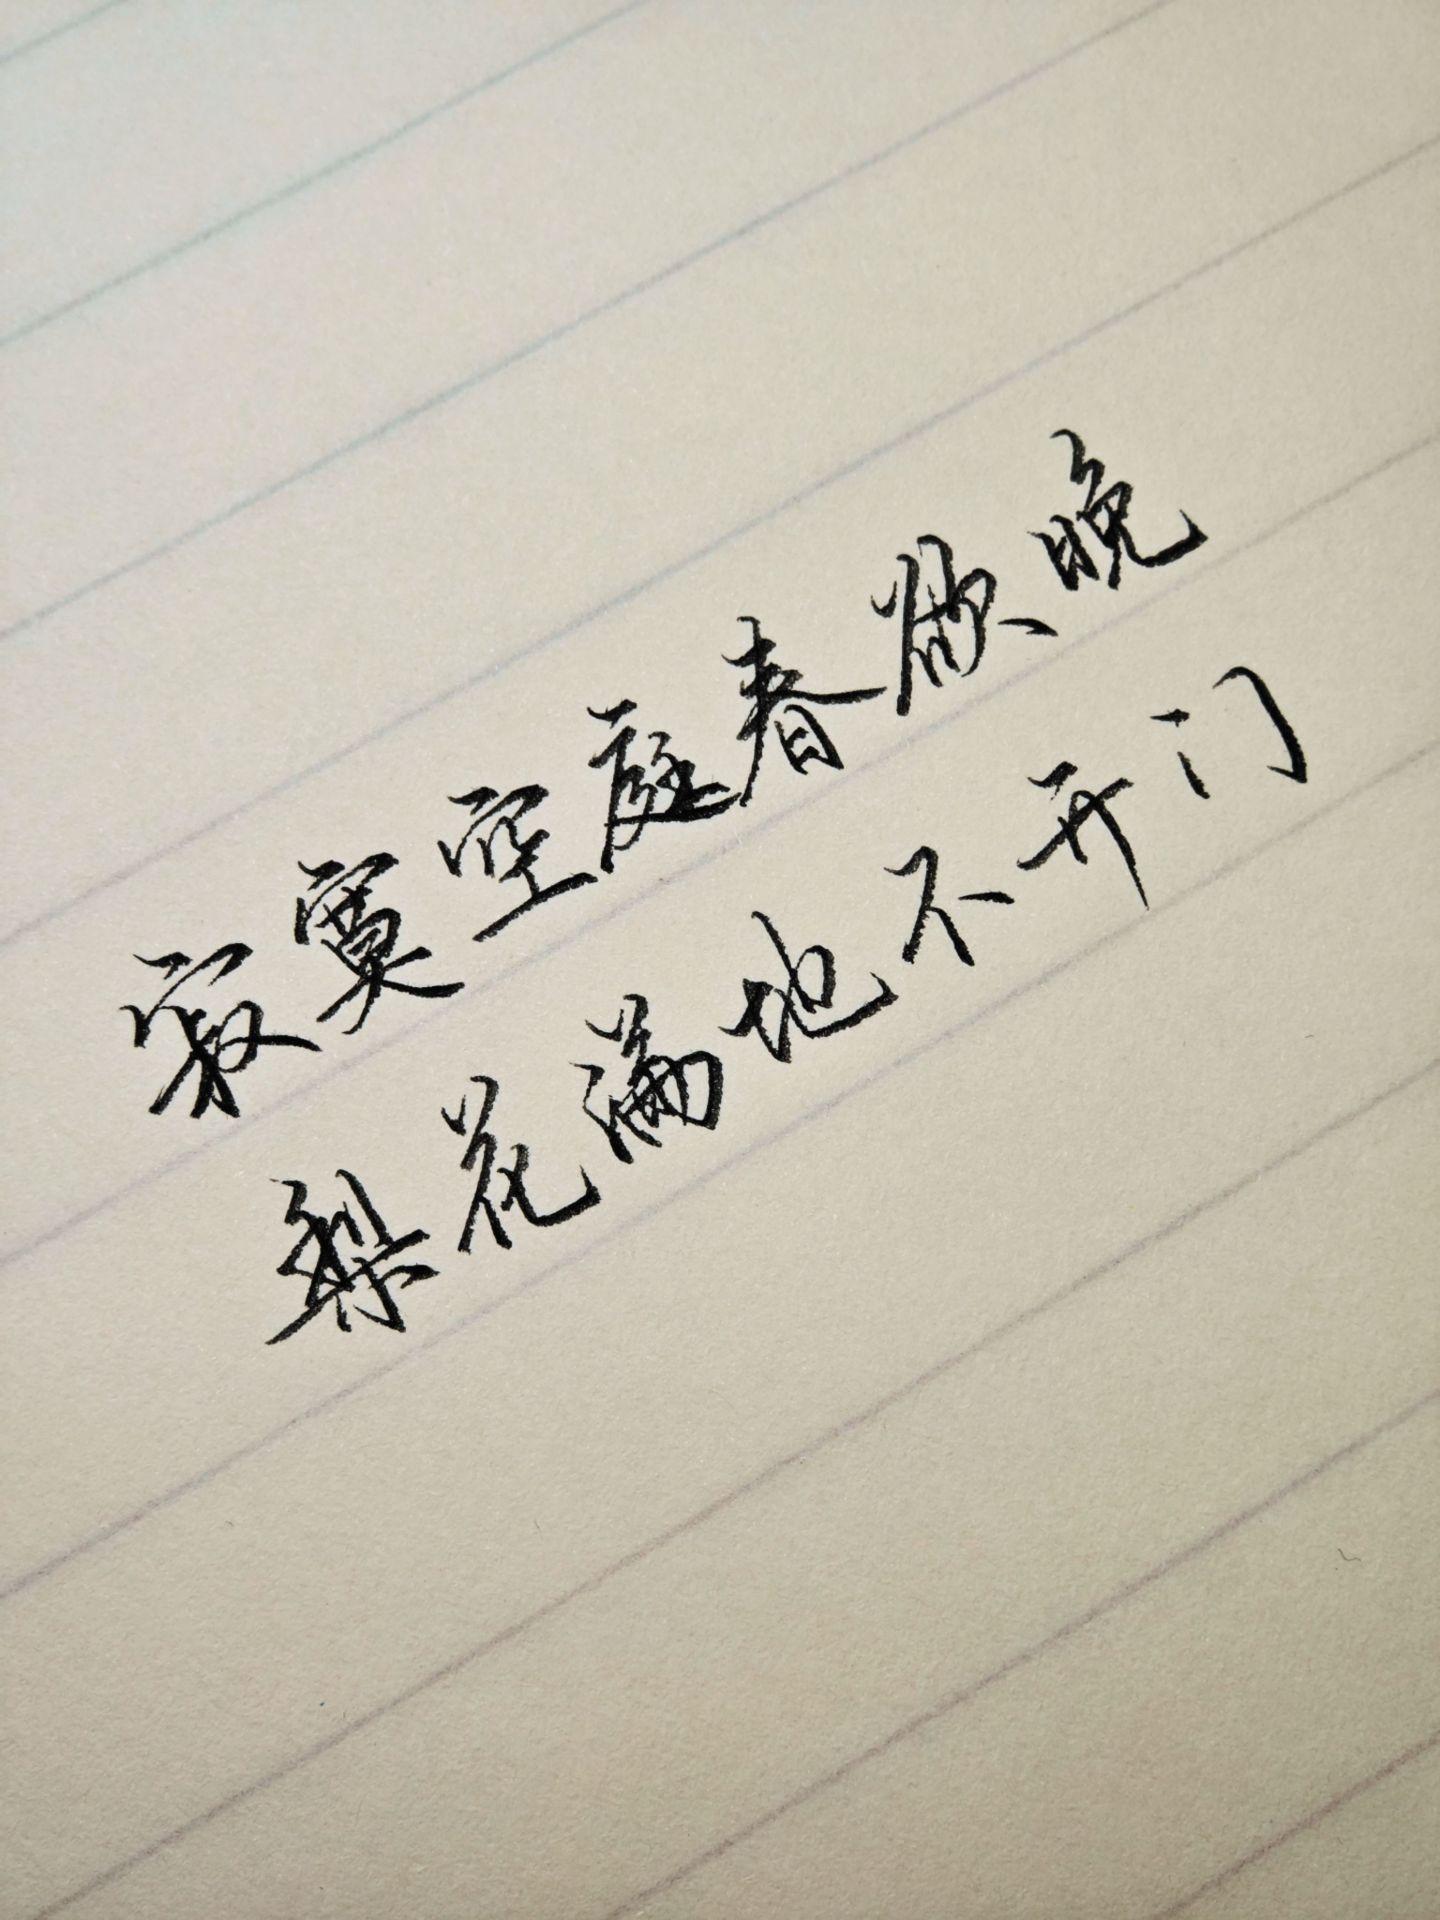 寂寞空庭春欲晚
梨花满地不开门